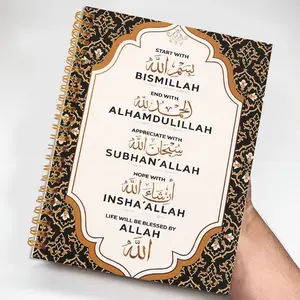 START WITH
بسم الله
BISMILLAH
END WITH
الحمد لله
ALHAMDULILLAH
APPRECIATE WITH
سبحان الله
SUBHAN'ALLAH
HOPE WITH
إن شاء الله
INSHA'ALLAH
LIFE WILL BE BLESSED BY
ALLAH
الله